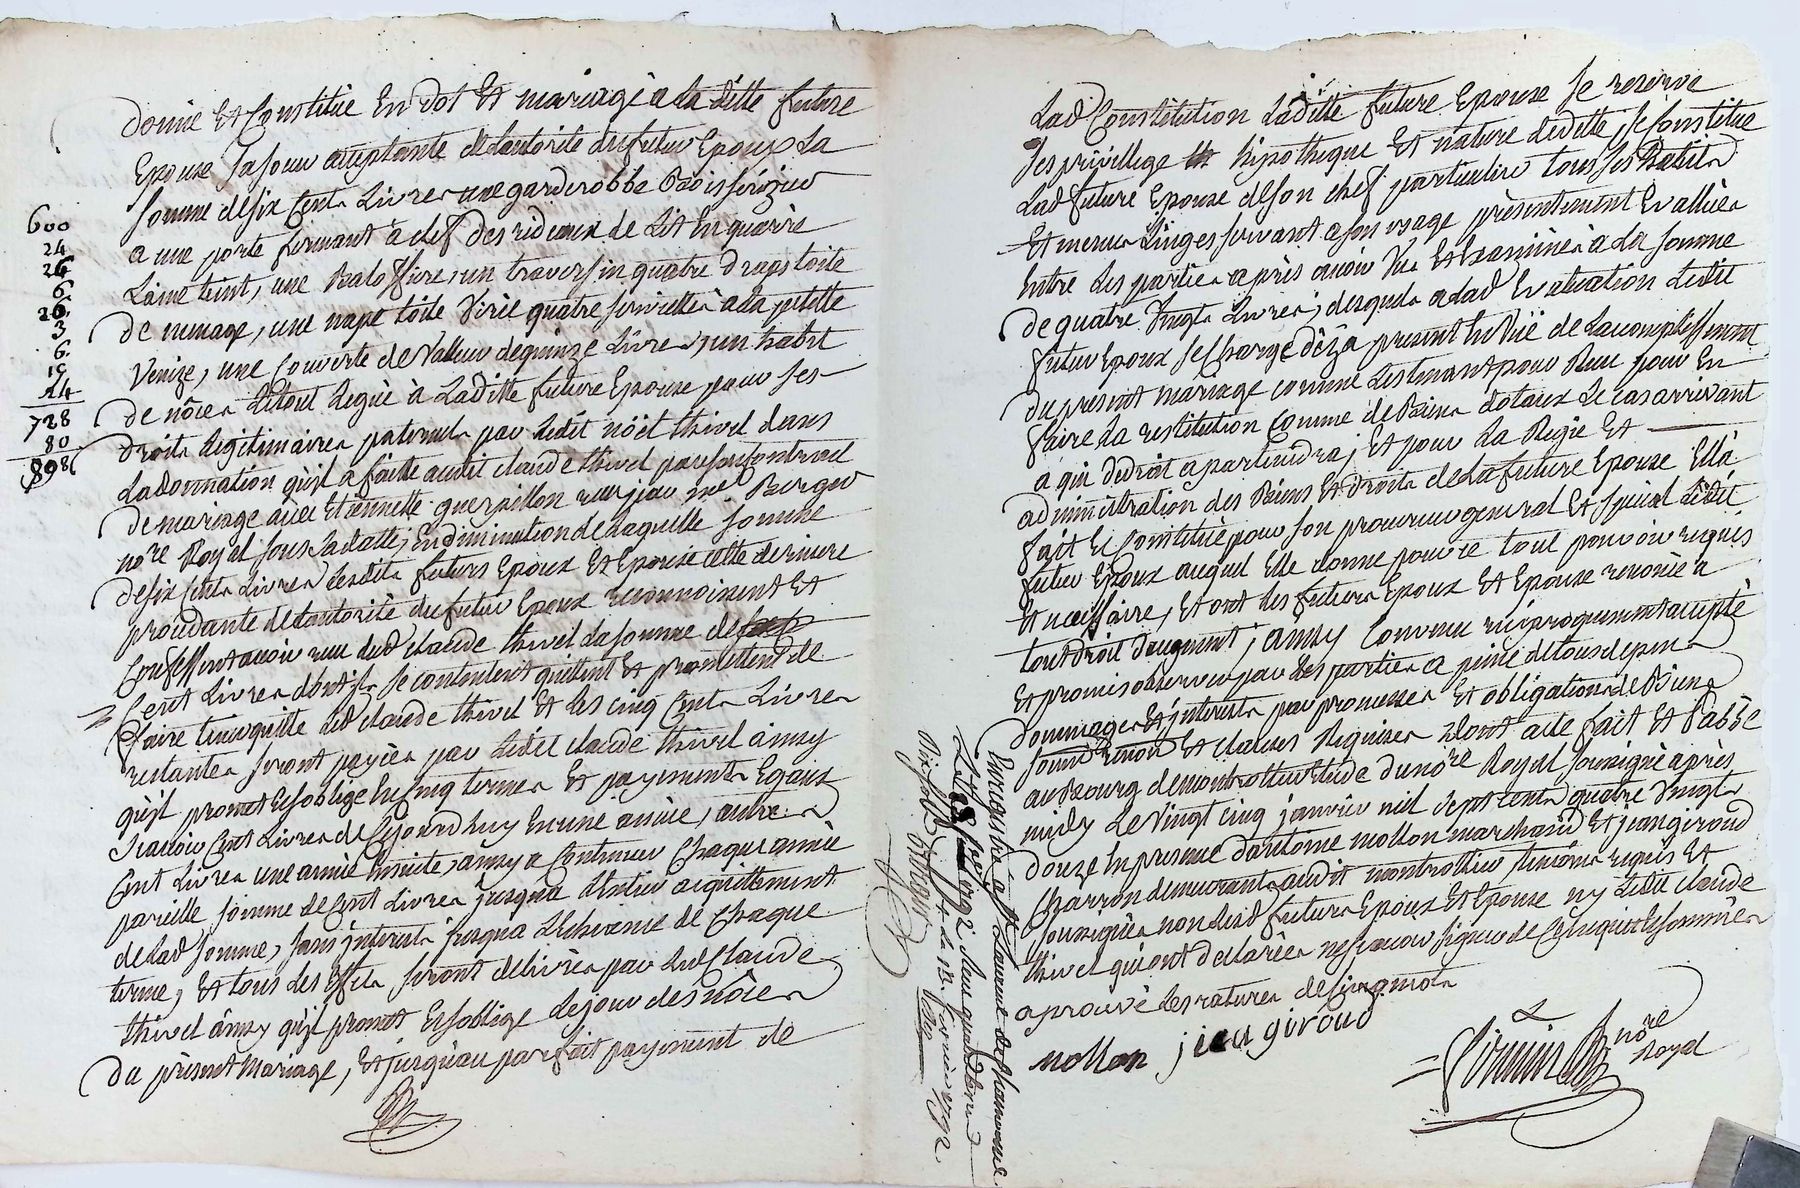 donne Et Constitue En dot Et mariage à la ditte future
Epouse sa sœur acceptante de l'autorité du futur Epoux La
somme de six Cents Livres une garderobbe Bois
a une porte fermant à clef des rideaux de Lit En
Laine teint, une Balossiere, un traversin quatre draps toile
de menage, une nape toile Virée quatre serviettes a la petitte
Venize, une Couverte de Valleur de quinze Livres, un habit
de nôces Letout Legué à Laditte future Epouse pour ses
droits Legitimaires paternels par Ledit nöel thivel dans
La donnation qu'il a faitte audit claude thivel par son Contract
de mariage avec Etiennette guerpillon reçu par me Burger
nore Royal sous sa datte; En diminution de laquelle somme
de six Cents Livres Lesdits futurs Epoux Et Epouse cette derniere
procedante de l'autorité du futur Epoux reconnoissent Et
Confessent avoir reçu dud claude thivel La somme de
Cent Livres dont ils se contentent quittent Et promettent de
faire tenir quitte led claude thivel Et Les cinq Cents Livres
restantes seront payées par Ledit claude thivel ainsy
qu'il promet Et s'oblige En cinq termes Et payements Egaux
sçavoir Cent Livres de Cejourdhuy En une année, autres
Cent Livres une année Ensuite, ainsy a Continuer Chaque année
pareille somme de Cent Livres jusqua L'Entier acquittement
de lad somme, sans jnterests jusqua L'Echeance de Chaque
terme, Et tous les Effets seront délivrés par Led Claude
thivel ainsy qu'il promet Et s'oblige Le jour des nôces
du présent mariage, Et jusqu'au parfait payement de
600
24
24
6
26
3
6
15
24
728
80
808
Lad Constitution Laditte future Epouse se reserve
ses privillege hipotheque Et nature de dette, se Constitue
Lad future Epouse de son chef particulier tous ses habits
Et menus Linges servant a son usage présentement Evallués
Entre Les parties après avoir Vu Et Examinés à La somme
de quatre Vingts Livres, desquels a lad Evaluation Ledit
futur Epoux se Charge déza present En Vüe de Lacomplissement
du present mariage comme Les tenant pour Reçu pour En
faire La restitution Comme de Biens dotaux Le cas arrivant
a qui de droit apartiendra; Et pour La Regie Et
administration des Biens Et droits de La future Epouse Ella
fait Et Constitué pour son procureur general Et special Ledit
futur Epoux auquel Elle donne pour ce tout pouvoir requis
Et necessaire, Et ont Les futurs Epoux Et Epouse renoncé a
tout droit d'augment; ainsy Convenu reciproquement accepté
Et promis observer par Les parties a peine de tous depens
dommages Et jnterests par promesses Et obligation de Biens
soum renon Et clauses Requises Dont acte fait Et Passé
au Bourg de montrottier Etude du nore Royal soussigné après
midy Le Vingt cinq janvier mil sept cents quatre Vingts
douze En presence d'antoine mollon marchand Et jean giroud
Charron demeurants audit montrottier temoins requis Et
soussignés non Lesd futurs Epoux Et Epouse ny Ledit claude
thivel qui ont declarés ne scavoir signer de Ce Enquis Et sommés
aprouvé Les ratures de mots
mollon jean giroud
nore
Royal
Enregistré a St Laurent de Chamousset
Le 1792